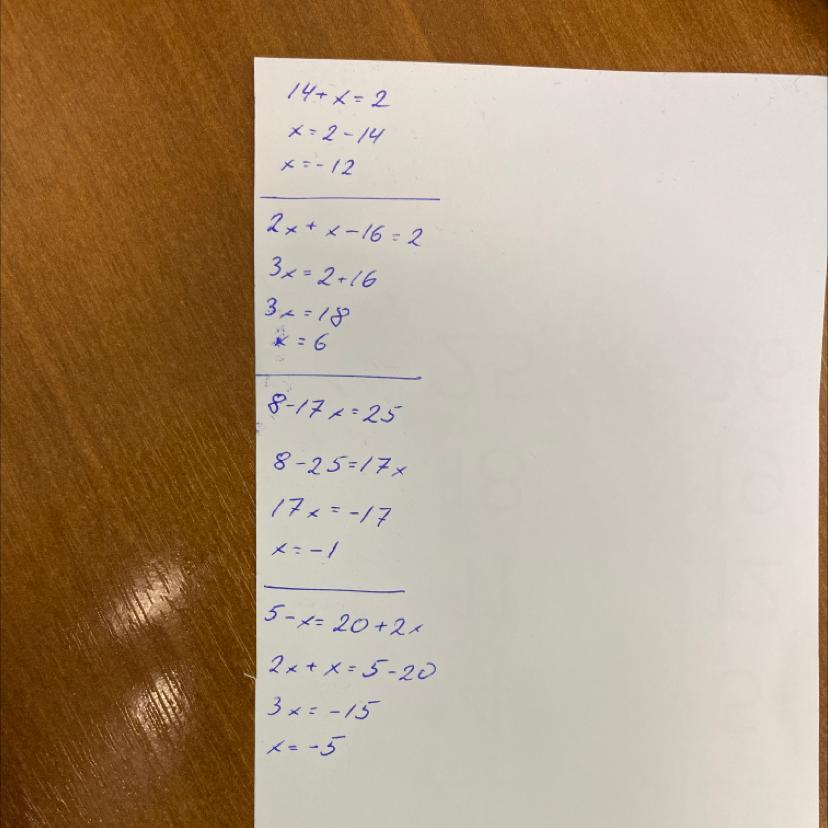 14+x=2
x=2-14
x=-12
2x+x-16=2
3x=2+16
3x=18
x=6
8-17x=25
8-25=17x
17x=-17
x=-1
5-x=20+2x
2x+x=5-20
3x=-15
x=-5